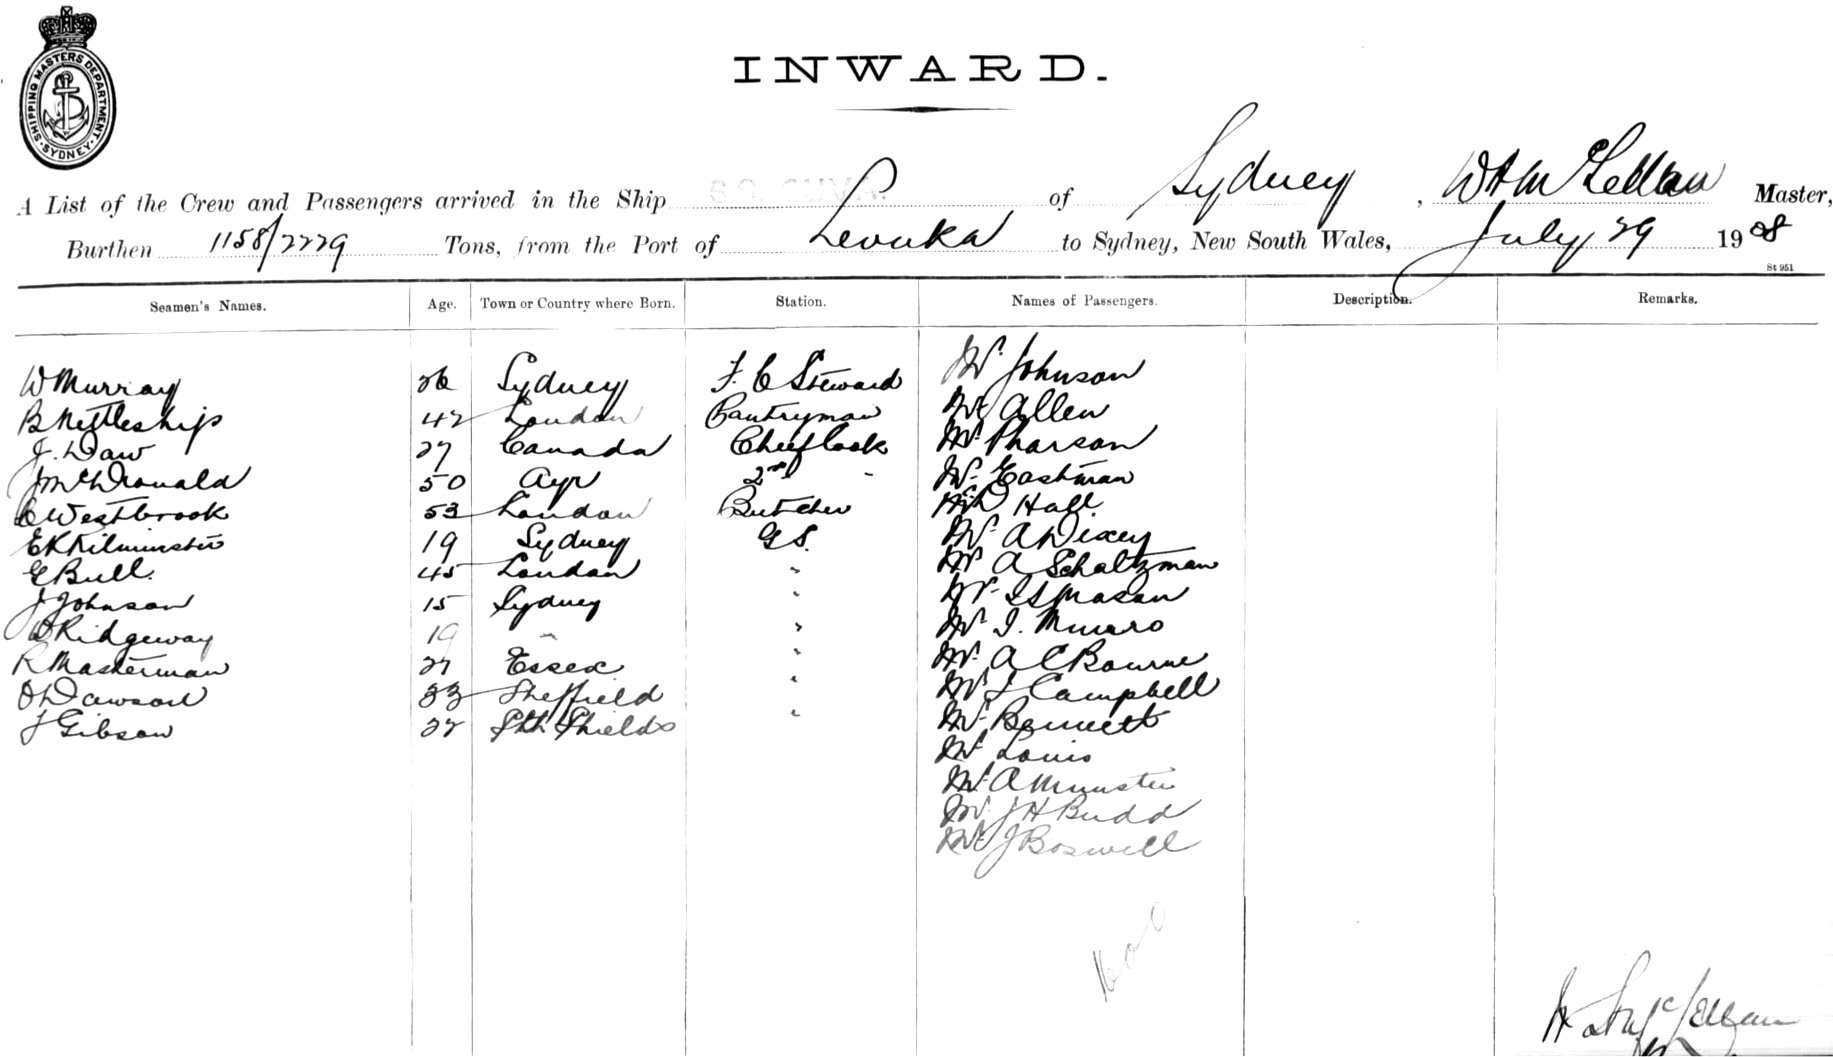 SHIPPING MASTERS DEPARTMENT. SYDNEY.
INWARD.
A List of the Crew and Passengers arrived in the Ship S.S. SUVA. of Sydney, W A McLellan Master,
Burthen 1158/2229 Tons, from the Port of Levuka to Sydney, New South Wales, July 29 1908
St 951
Seamen's Names. Age. Town or Country where Born. Station. Names of Passengers. Description. Remarks.
W Murray 26 Sydney F. C Steward Mr Johnson
B Nettleship 42 London Pantryman Mr Allen
J. Daw 27 Canada Chief Cook Mr Pharson
J McDonald 50 Ayr 2nd " Mr Eastman
C Westbrook 53 London Butcher Hall
E K Kilminster 19 Sydney G S. Mr A Dixey
G Bull. 45 London " Mr A Schaltzman
J Johnson 15 Sydney " Mr Mason
D Ridgeway 19 " " Mr J. Munro
R Masterman 27 Essex " Mr A C Bourne
O Dawson 33 Sheffield " Mr J Campbell
J Gibson 22 Sth Shields " Mr Bennett
Mr Louis
Mr A Munster
Mr J H Budd
Mr J Boswell
McLellan